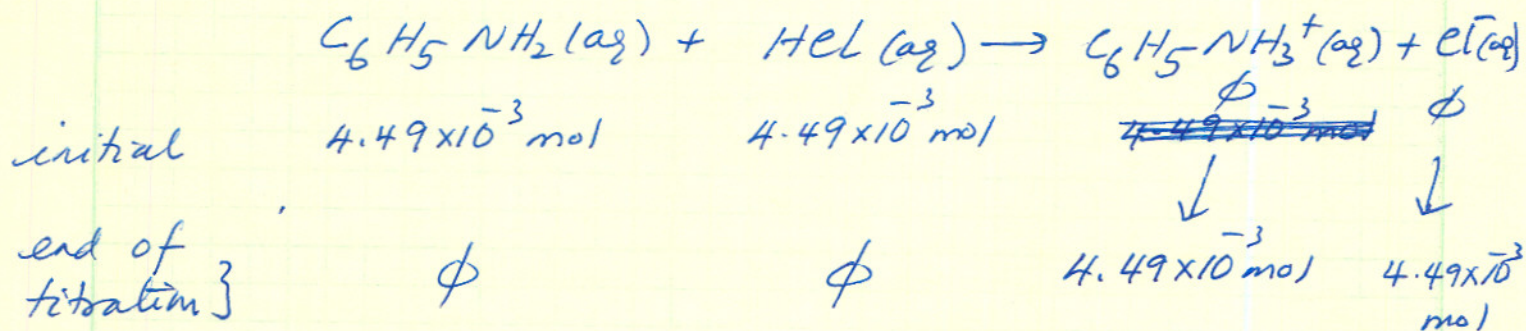 C₆H₅NH₂(aq) + HCl(aq) → C₆H₅NH₃⁺(aq) + Cl⁻(aq)
initial 4.49×10⁻³ mol 4.49×10⁻³ mol ϕ ϕ
4.49×10⁻³ mol
↓ ↓
end of titration} ϕ ϕ 4.49×10⁻³ mol 4.49×10⁻³ mol